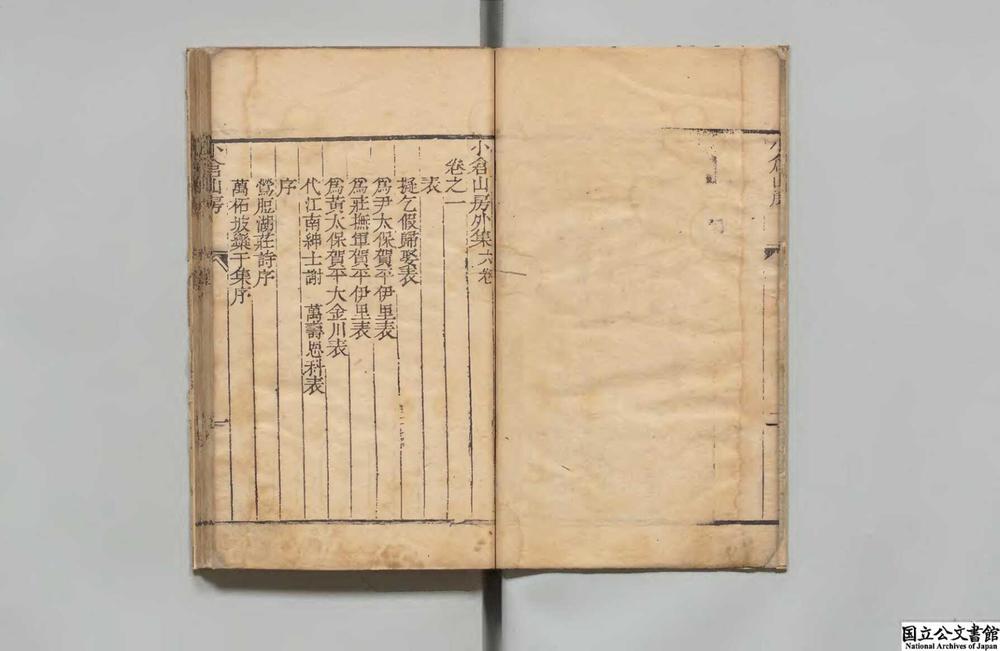 小倉山房外集六卷
卷之一
表
擬乞假歸娶表
爲尹太保賀平伊里表
爲莊撫軍賀平伊里表
爲黃太保賀平大金川表
代江南紳士謝 萬壽恩科表
序
鶯脰湖莊詩序
萬柘坡樂于集序
小倉山房
国立公文書館
National Archives of Japan